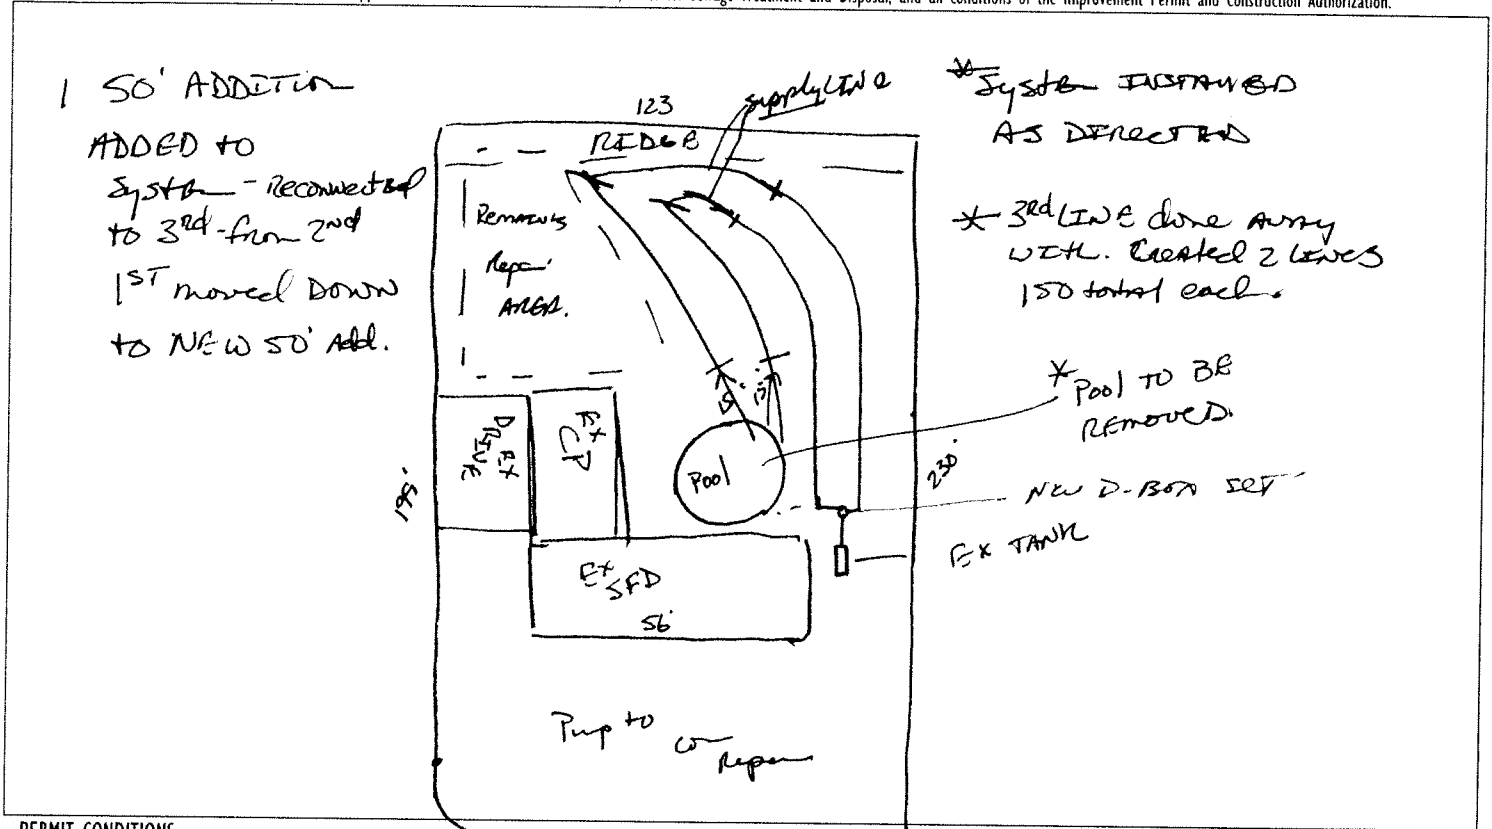 Sewage Treatment and Disposal, and all conditions of the Improvement Permit and Construction Authorization.
1 50' ADDITION
ADDED to
System - Reconnected
to 3rd - from 2nd
1ST moved DOWN
to NEW 50' Add.
123
supply LINE
RIDGE
Remains
Repair
AREA.
* System INSTALLED
AS DIRECTED
* 3rd LINE done AWAY
WITH. Created 2 LINES
150 total each.
* Pool TO BE
REMOVED.
NEW D-BOX SET
EX TANK
EX
DRIVE
EX
CP
Pool
15'
195'
230'
EX
SFD
56'
Pump to
Repair
PERMIT CONDITIONS